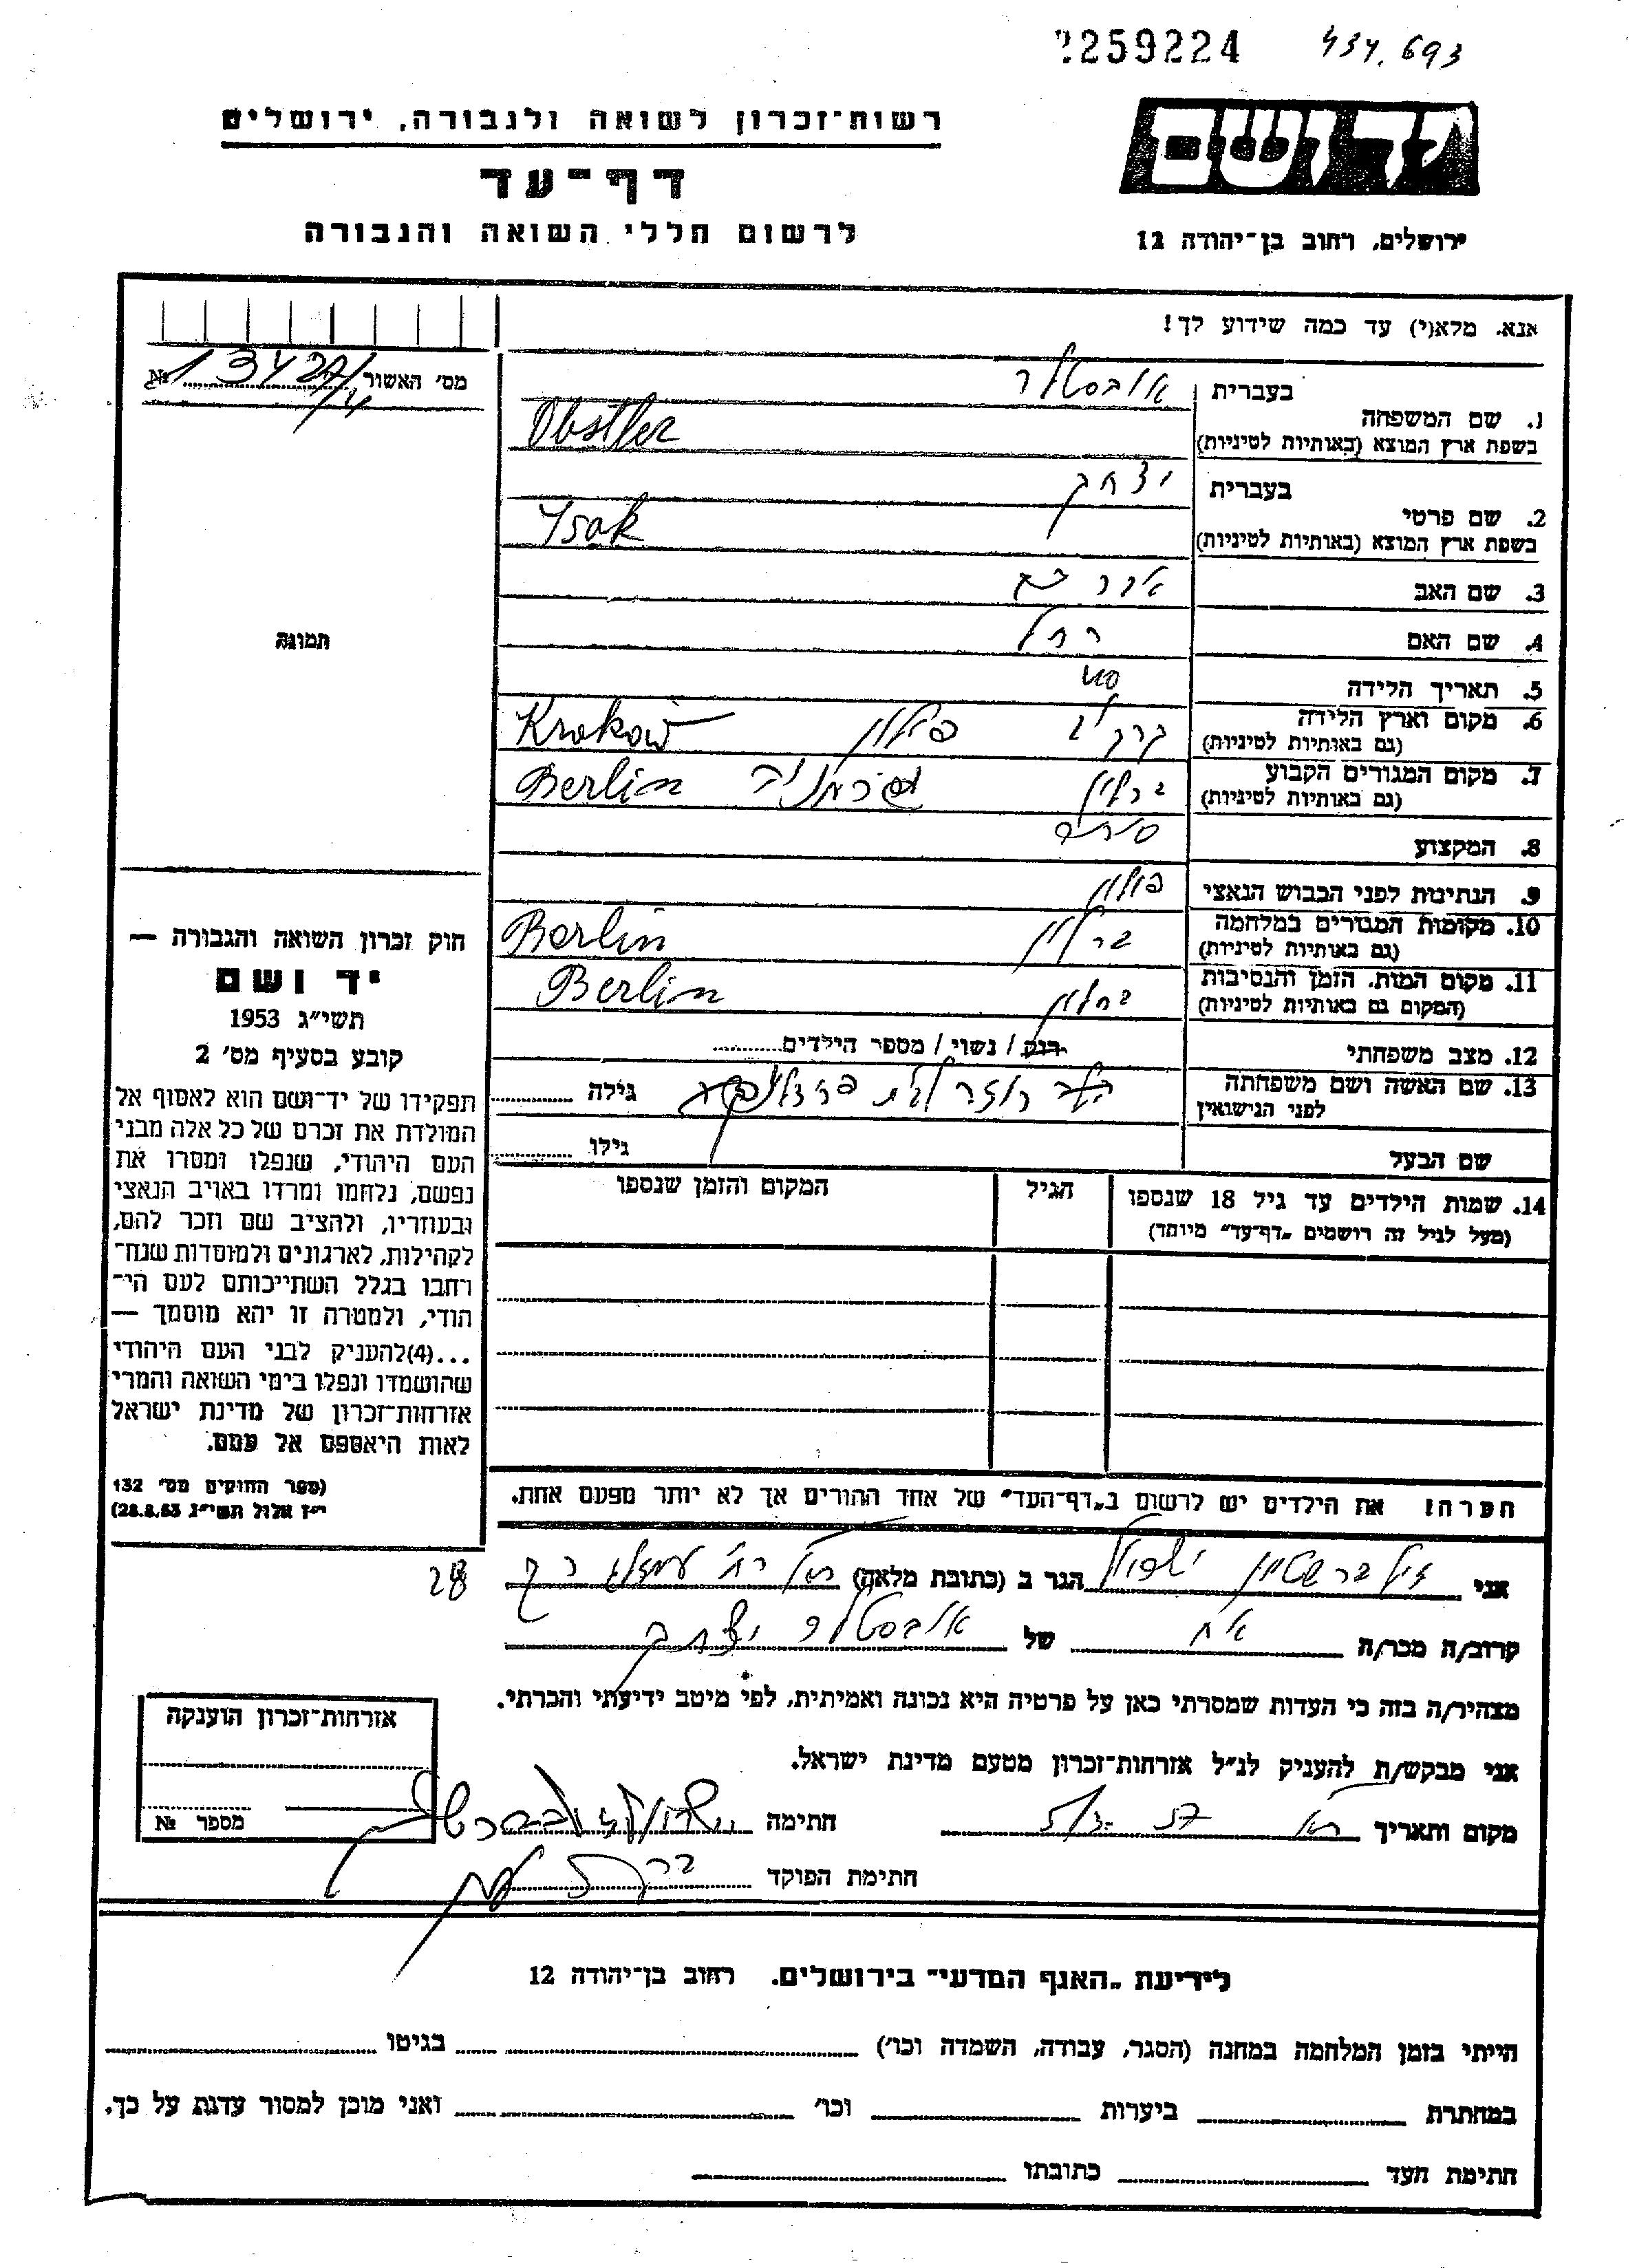 259224 434.693
רשות־זכרון לשואה ולגבורה, ירושלים
יד ושם
דף־עד
לרשום חללי השואה והגבורה
ירושלים, רחוב בן־יהודה 12
אנא, מלא(י) עד כמה שידוע לך!
מס' האשור № 13427/4
1. שם המשפחה
בעברית אובסטלר
בשפת ארץ המוצא (באותיות לטיניות) Obstler
2. שם פרטי
בעברית יצחק
בשפת ארץ המוצא (באותיות לטיניות) Ysak
3. שם האב
4. שם האם רחל
5. תאריך הלידה
6. מקום וארץ הלידה
(גם באותיות לטיניות) פולין Krakow
7. מקום המגורים הקבוע
(גם באותיות לטיניות) ברלין גרמניה Berlin
8. המקצוע סוחר
9. הנתינות לפני הכבוש הנאצי פולין
10. מקומות המגורים במלחמה
(גם באותיות לטיניות) ברלין Berlin
11. מקום המות, הזמן והנסיבות
(המקום גם באותיות לטיניות) ברלין Berlin
12. מצב משפחתי רוק / נשוי / מספר הילדים
13. שם האשה ושם משפחתה
לפני הנישואין
גילה
שם הבעל גילו
14. שמות הילדים עד גיל 18 שנספו
(מעל לגיל זה רושמים „דף־עד" מיוחד)
הגיל
המקום והזמן שנספו
תמונה
חוק זכרון השואה והגבורה —
יד ושם
תשי״ג 1953
קובע בסעיף מס' 2
תפקידו של יד־ושם הוא לאסוף אל
המולדת את זכרם של כל אלה מבני
העם היהודי, שנפלו ומסרו את
נפשם, נלחמו ומרדו באויב הנאצי
ובעוזריו, ולהציב שם וזכר להם,
לקהילות, לארגונים ולמוסדות שנח־
רחבו בגלל השתייכותם לעם הי־
הודי, ולמטרה זו יהא מוסמך —
...(4)להעניק לבני העם היהודי
שהושמדו ונפלו בימי השואה והמרי
אזרחות־זכרון של מדינת ישראל
לאות היאספם אל עמם.
(ספר החוקים מס' 132
י״ז אלול תשי״ג 28.8.53)
הערה! את הילדים יש לרשום ב„דף־העד" של אחד ההורים אך לא יותר מפעם אחת.
אני זילברשטיין הגר ב (כתובת מלאה) 28
קרוב/ה מכר/ה אח של אובסטלר יצחק
מצהיר/ה בזה כי העדות שמסרתי כאן על פרטיה היא נכונה ואמיתית, לפי מיטב ידיעתי והכרתי.
אני מבקש/ת להעניק לנ״ל אזרחות־זכרון מטעם מדינת ישראל.
מקום ותאריך חתימה
חתימת הפוקד
אזרחות־זכרון הוענקה
מספר №
לידיעת „האגף המדעי" בירושלים, רחוב בן־יהודה 12
הייתי בזמן המלחמה במחנה (הסגר, עבודה, השמדה וכו') בגיטו
במחתרת ביערות וכו' ואני מוכן למסור עדות על כך.
חתימת העד כתובתו